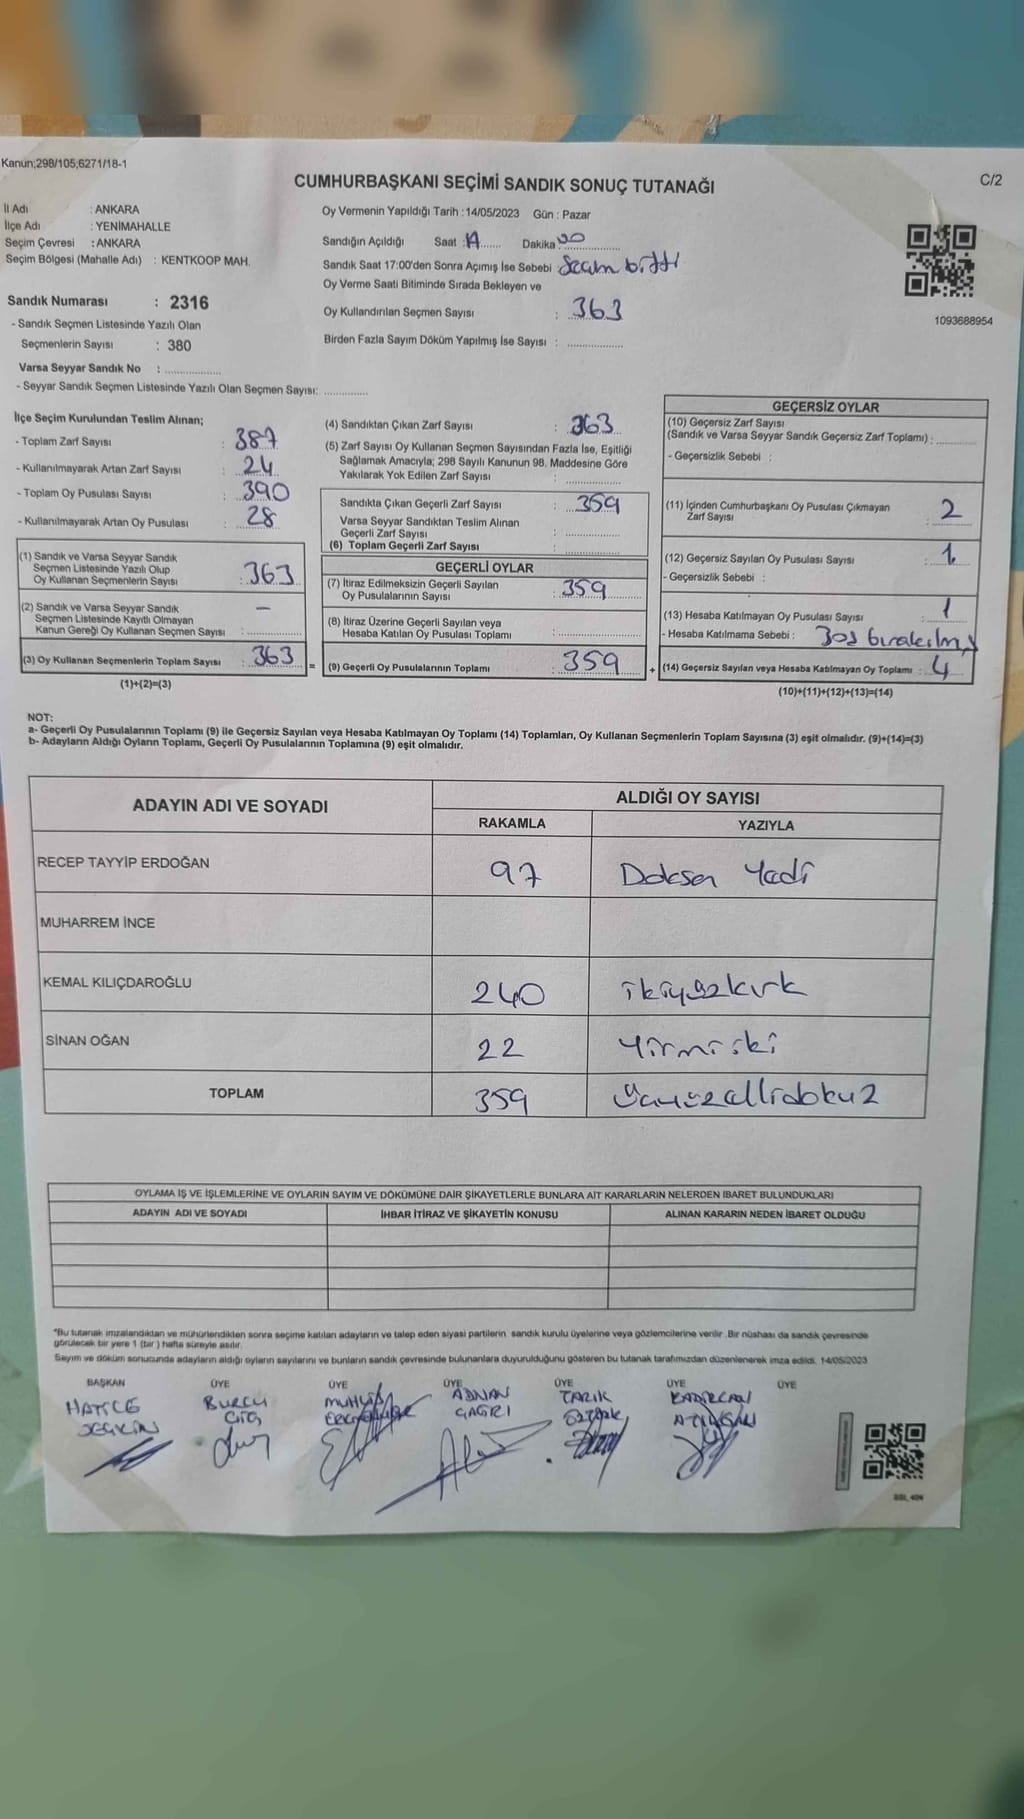 Kanun;298/105;6271/18-1
CUMHURBAŞKANI SEÇİMİ SANDIK SONUÇ TUTANAĞI
C/2
İl Adı : ANKARA
İlçe Adı : YENİMAHALLE
Seçim Çevresi : ANKARA
Seçim Bölgesi (Mahalle Adı) : KENTKOOP MAH.
Sandık Numarası : 2316
- Sandık Seçmen Listesinde Yazılı Olan
Seçmenlerin Sayısı : 380
Varsa Seyyar Sandık No : ..................
- Seyyar Sandık Seçmen Listesinde Yazılı Olan Seçmen Sayısı: ..............
Oy Vermenin Yapıldığı Tarih :14/05/2023 Gün : Pazar
Sandığın Açıldığı Saat : Dakika :
Sandık Saat 17:00'den Sonra Açımış İse Sebebi Seçim bitti
Oy Verme Saati Bitiminde Sırada Bekleyen ve
Oy Kullandırılan Seçmen Sayısı : 363
Birden Fazla Sayım Döküm Yapılmış İse Sayısı : ..................
1093688954
İlçe Seçim Kurulundan Teslim Alınan;
- Toplam Zarf Sayısı : 387
- Kullanılmayarak Artan Zarf Sayısı : 24
- Toplam Oy Pusulası Sayısı : 390
- Kullanılmayarak Artan Oy Pusulası : 28
(1) Sandık ve Varsa Seyyar Sandık
Seçmen Listesinde Yazılı Olup
Oy Kullanan Seçmenlerin Sayısı : 363
(2) Sandık ve Varsa Seyyar Sandık
Seçmen Listesinde Kayıtlı Olmayan
Kanun Gereği Oy Kullanan Seçmen Sayısı : –
(3) Oy Kullanan Seçmenlerin Toplam Sayısı : 363
(1)+(2)=(3)
=
(4) Sandıktan Çıkan Zarf Sayısı : 363
(5) Zarf Sayısı Oy Kullanan Seçmen Sayısından Fazla İse, Eşitliği
Sağlamak Amacıyla; 298 Sayılı Kanunun 98. Maddesine Göre
Yakılarak Yok Edilen Zarf Sayısı : ..................
Sandıkta Çıkan Geçerli Zarf Sayısı : 359
Varsa Seyyar Sandıktan Teslim Alınan
Geçerli Zarf Sayısı : ..................
(6) Toplam Geçerli Zarf Sayısı : ..................
GEÇERLİ OYLAR
(7) İtiraz Edilmeksizin Geçerli Sayılan
Oy Pusulalarının Sayısı : 359
(8) İtiraz Üzerine Geçerli Sayılan veya
Hesaba Katılan Oy Pusulası Toplamı : ..................
(9) Geçerli Oy Pusulalarının Toplamı : 359
+
GEÇERSİZ OYLAR
(10) Geçersiz Zarf Sayısı
(Sandık ve Varsa Seyyar Sandık Geçersiz Zarf Toplamı) : ............
- Geçersizlik Sebebi :
(11) İçinden Cumhurbaşkanı Oy Pusulası Çıkmayan
Zarf Sayısı : 2
(12) Geçersiz Sayılan Oy Pusulası Sayısı : 1
- Geçersizlik Sebebi :
(13) Hesaba Katılmayan Oy Pusulası Sayısı : 1
- Hesaba Katılmama Sebebi : Boş bırakılmış
(14) Geçersiz Sayılan veya Hesaba Katılmayan Oy Toplamı : 4
(10)+(11)+(12)+(13)=(14)
NOT:
a- Geçerli Oy Pusulalarının Toplamı (9) ile Geçersiz Sayılan veya Hesaba Katılmayan Oy Toplamı (14) Toplamları, Oy Kullanan Seçmenlerin Toplam Sayısına (3) eşit olmalıdır. (9)+(14)=(3)
b- Adayların Aldığı Oyların Toplamı, Geçerli Oy Pusulalarının Toplamına (9) eşit olmalıdır.
ADAYIN ADI VE SOYADI ALDIĞI OY SAYISI
RAKAMLA YAZIYLA
RECEP TAYYİP ERDOĞAN 97 Doksan Yedi
MUHARREM İNCE
KEMAL KILIÇDAROĞLU 240 ikiyüzkırk
SİNAN OĞAN 22 Yirmi iki
TOPLAM 359 Üçyüzellidokuz
OYLAMA İŞ VE İŞLEMLERİNE VE OYLARIN SAYIM VE DÖKÜMÜNE DAİR ŞİKAYETLERLE BUNLARA AİT KARARLARIN NELERDEN İBARET BULUNDUKLARI
ADAYIN ADI VE SOYADI İHBAR İTİRAZ VE ŞİKAYETİN KONUSU ALINAN KARARIN NEDEN İBARET OLDUĞU
*Bu tutanak imzalandıktan ve mühürlendikten sonra seçime katılan adayların ve talep eden siyasi partilerin sandık kurulu üyelerine veya gözlemcilerine verilir. Bir nüshası da sandık çevresinde
görülecek bir yere 1 (bir) hafta süreyle asılır.
Sayım ve döküm sonucunda adayların aldığı oyların sayılarını ve bunların sandık çevresinde bulunanlara duyurulduğunu gösteren bu tutanak tarafımızdan düzenlenerek imza edildi. 14/05/2023
BAŞKAN ÜYE ÜYE ÜYE ÜYE ÜYE ÜYE
HATİCE BURCU MUHLİS ADNAN TARIK KADİRCAN
SEÇKİN ÇAĞRI